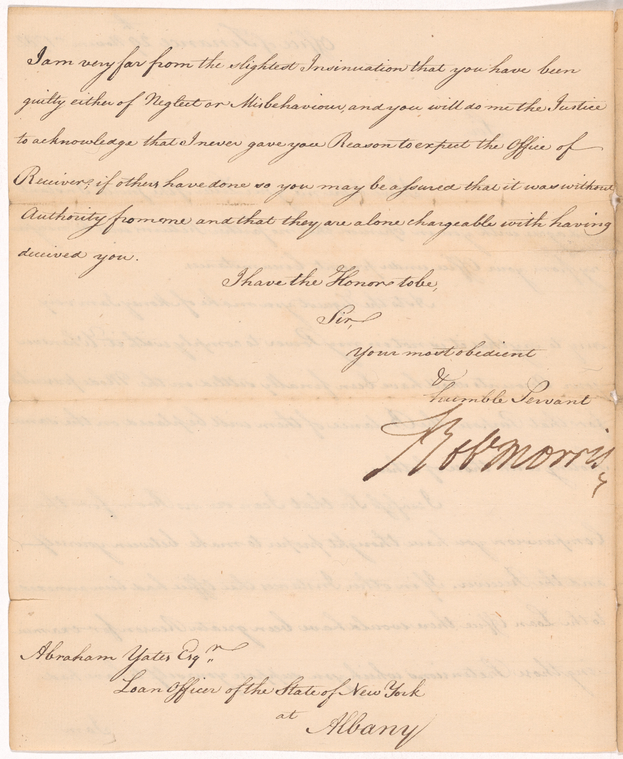 I am very far from the slightest Insinuation that you have been
guilty either of Neglect or Misbehaviour, and you will do me the Justice
to acknowledge that I never gave you Reason to expect the Office of
Receiver, if others have done so you may be assured that it was without
Authority from me and that they are alone chargeable with having
deceived you.
I have the Honor to be,
Sir,
Your most obedient
&
humble Servant
Robt Morris
Abraham Yates Esqr
Loan Officer of the State of New York
at
Albany